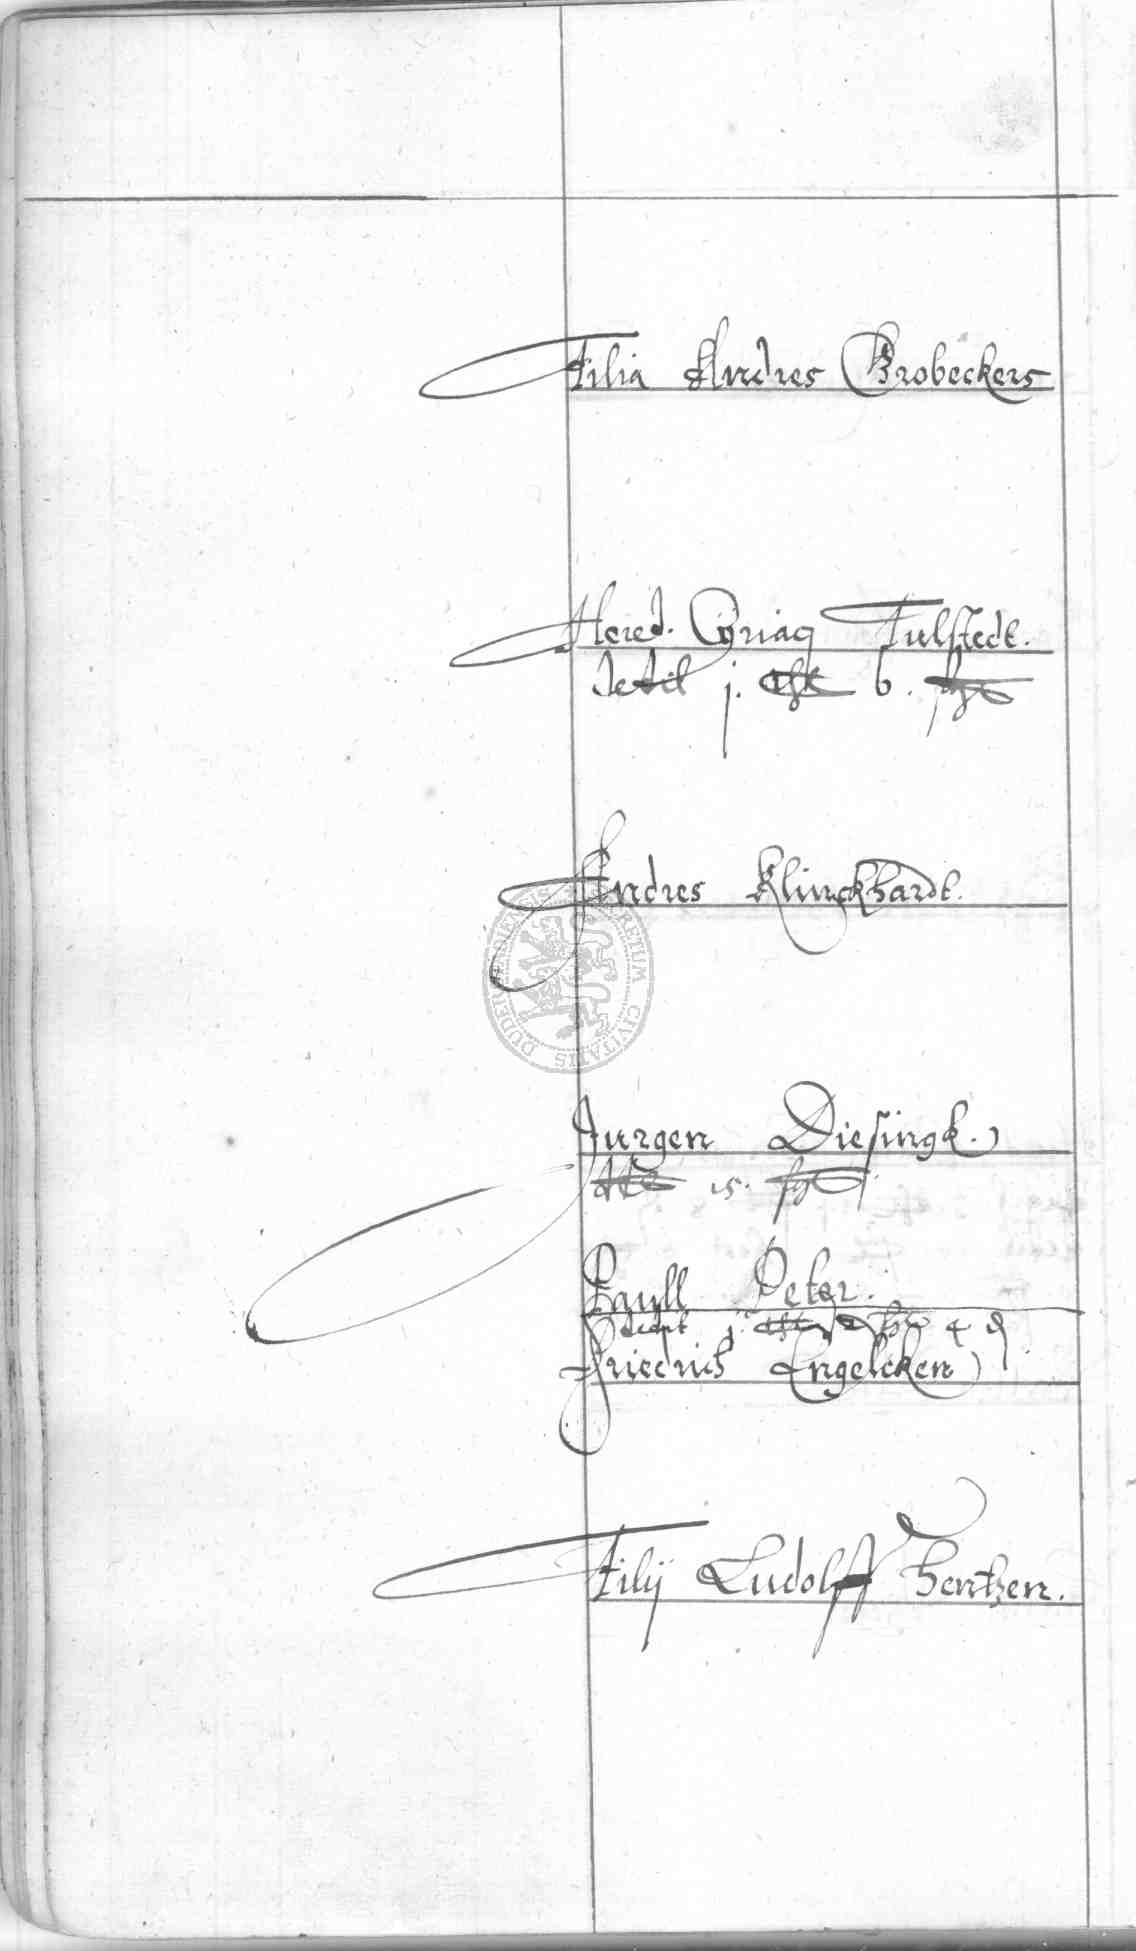 Filia Andres Brobeckers
Hered. Cyriaq Fulstedt.
dedit j. 6.
Andres Klinckhardt.
Jurgen Diesingk.
15.
Paull Peter.
dedit j. 4
Friedrich Engelcken
Filij Ludolff Hentzen.
SECRETUM CIVITATIS DUDERSTADIENSIS